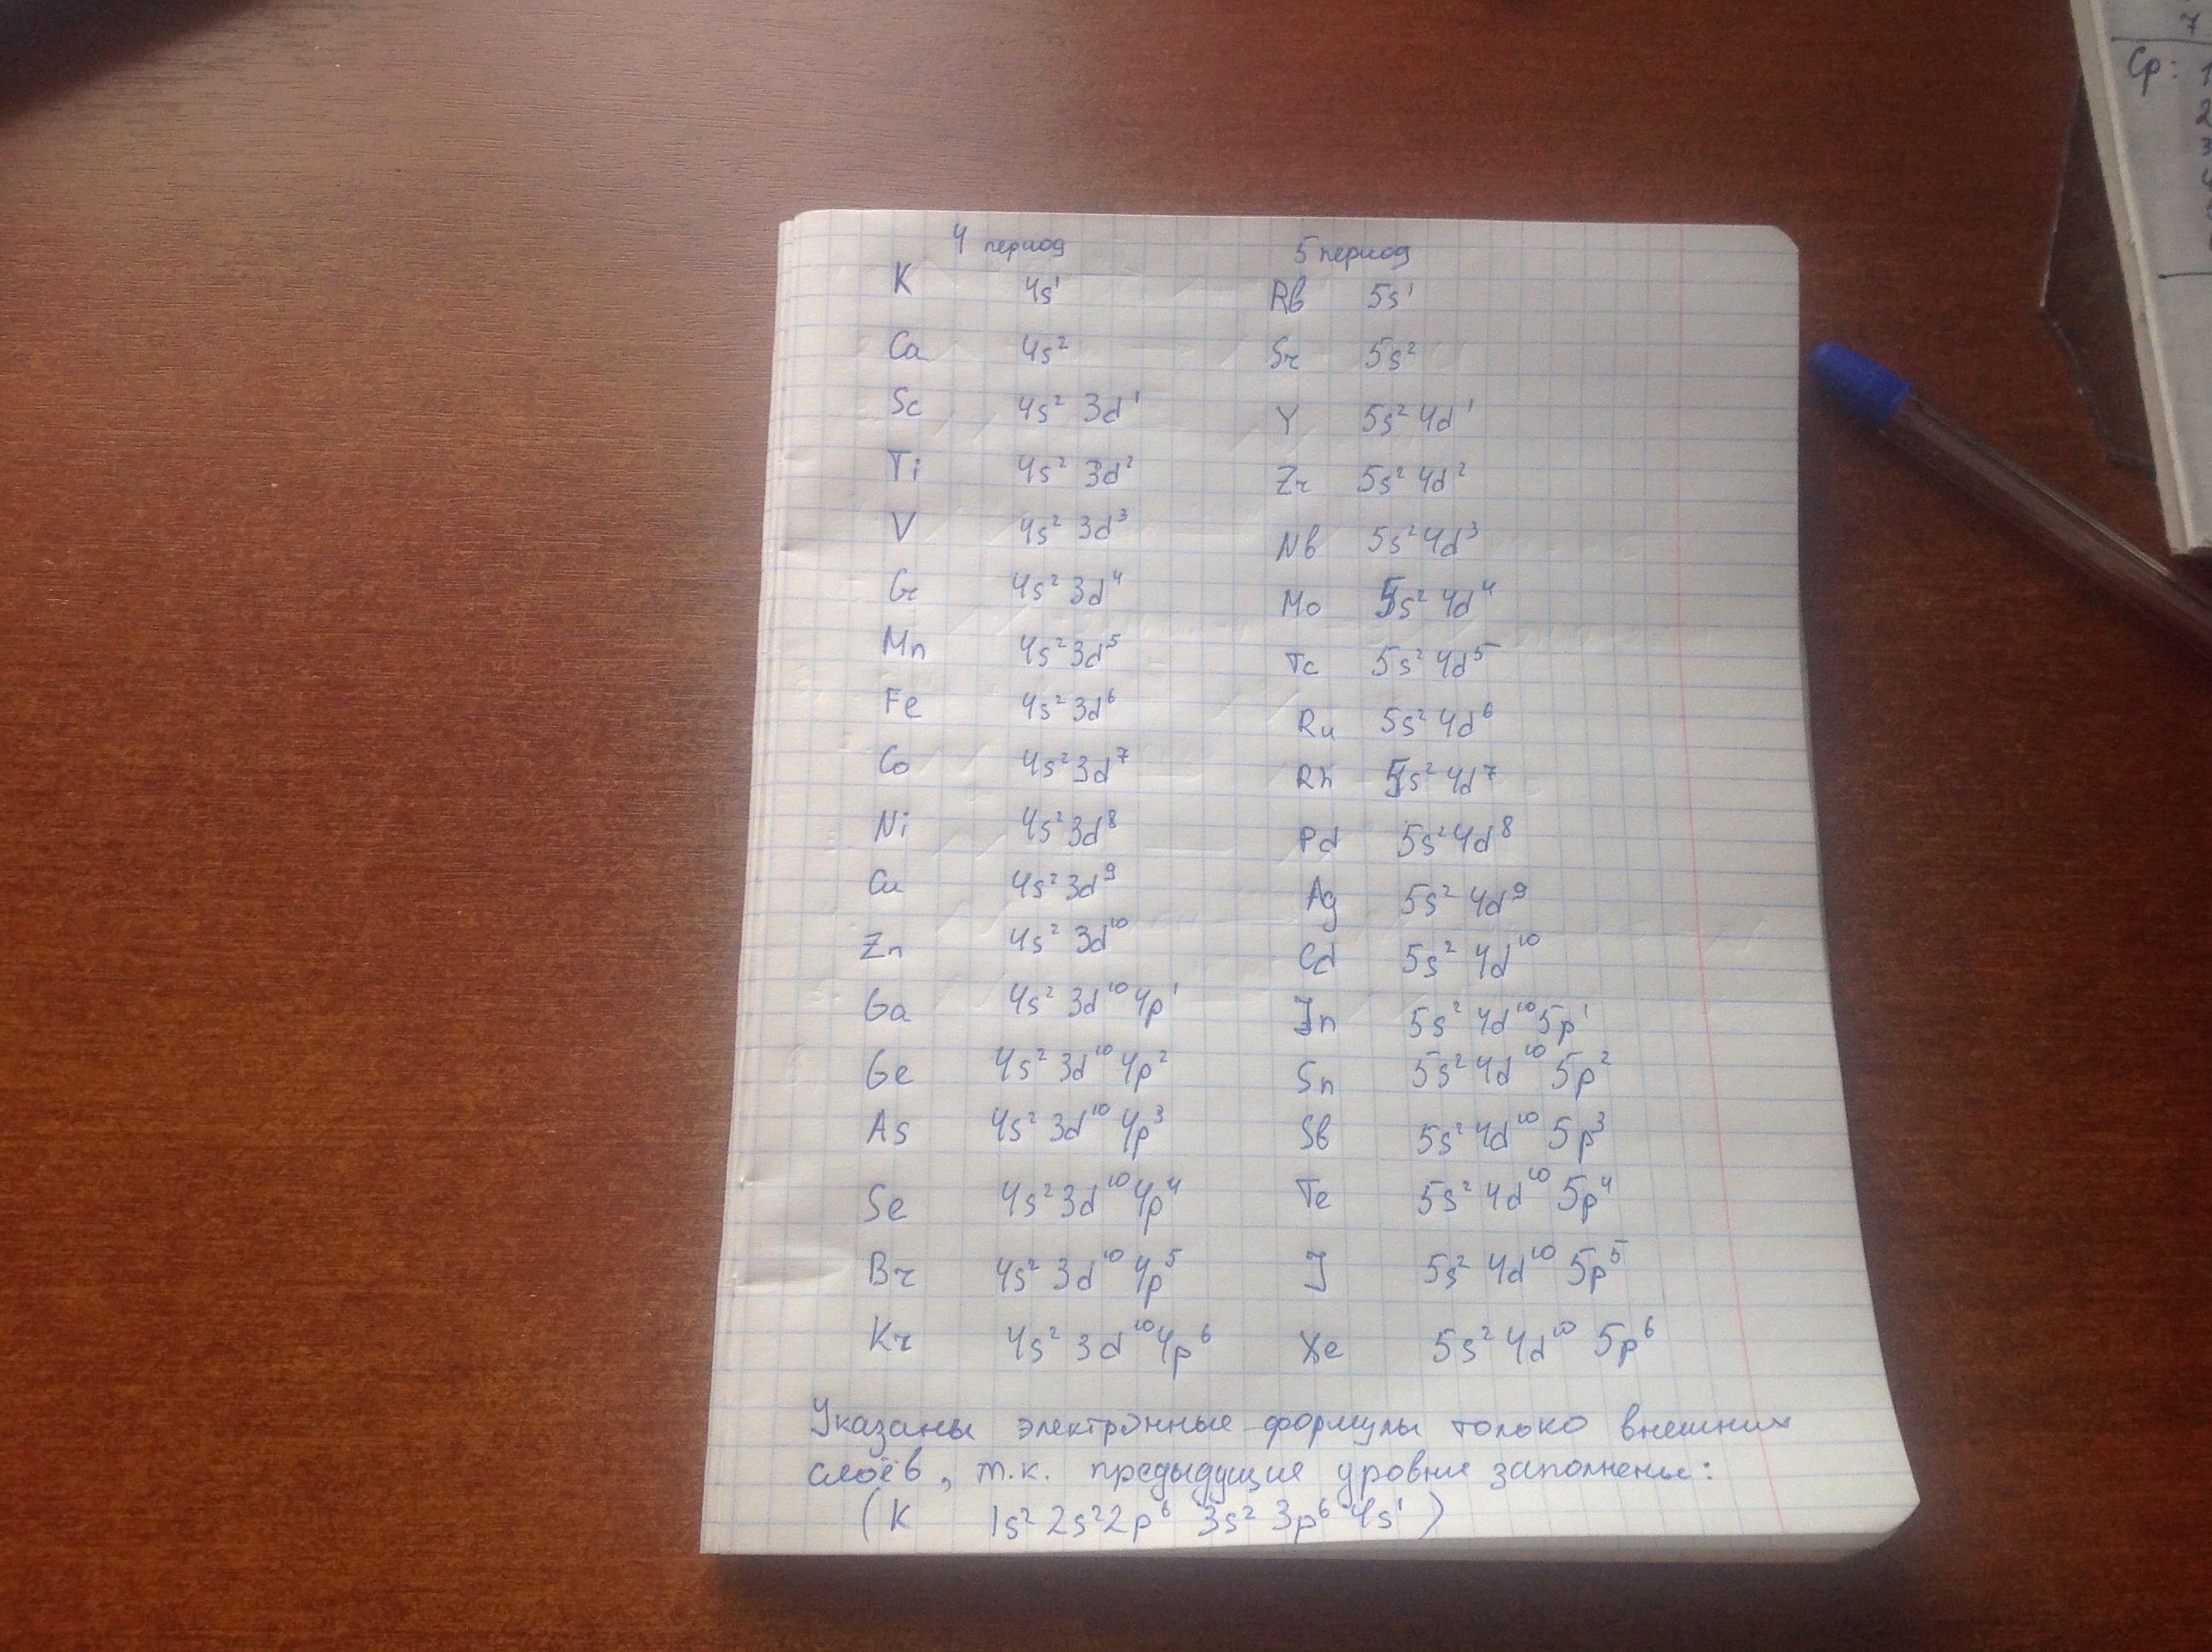 4 период 5 период
K 4s¹ Rb 5s¹
Ca 4s² Sr 5s²
Sc 4s² 3d¹ Y 5s² 4d¹
Ti 4s² 3d² Zr 5s² 4d²
V 4s² 3d³ Nb 5s² 4d³
Cr 4s² 3d⁴ Mo 5s² 4d⁴
Mn 4s² 3d⁵ Tc 5s² 4d⁵
Fe 4s² 3d⁶ Ru 5s² 4d⁶
Co 4s² 3d⁷ Rh 5s² 4d⁷
Ni 4s² 3d⁸ Pd 5s² 4d⁸
Cu 4s² 3d⁹ Ag 5s² 4d⁹
Zn 4s² 3d¹⁰ Cd 5s² 4d¹⁰
Ga 4s² 3d¹⁰ 4p¹ In 5s² 4d¹⁰ 5p¹
Ge 4s² 3d¹⁰ 4p² Sn 5s² 4d¹⁰ 5p²
As 4s² 3d¹⁰ 4p³ Sb 5s² 4d¹⁰ 5p³
Se 4s² 3d¹⁰ 4p⁴ Te 5s² 4d¹⁰ 5p⁴
Br 4s² 3d¹⁰ 4p⁵ J 5s² 4d¹⁰ 5p⁵
Kr 4s² 3d¹⁰ 4p⁶ Xe 5s² 4d¹⁰ 5p⁶
Указаны электронные формулы только внешних
слоёв, т.к. предыдущие уровни заполнены:
(K 1s² 2s² 2p⁶ 3s² 3p⁶ 4s¹)
7
Ср: 1
2
3
4